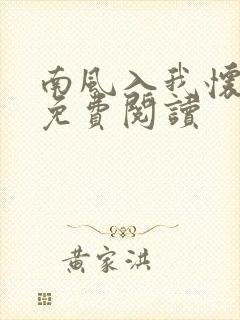 南風入我懷
免費閱讀
黃家洪